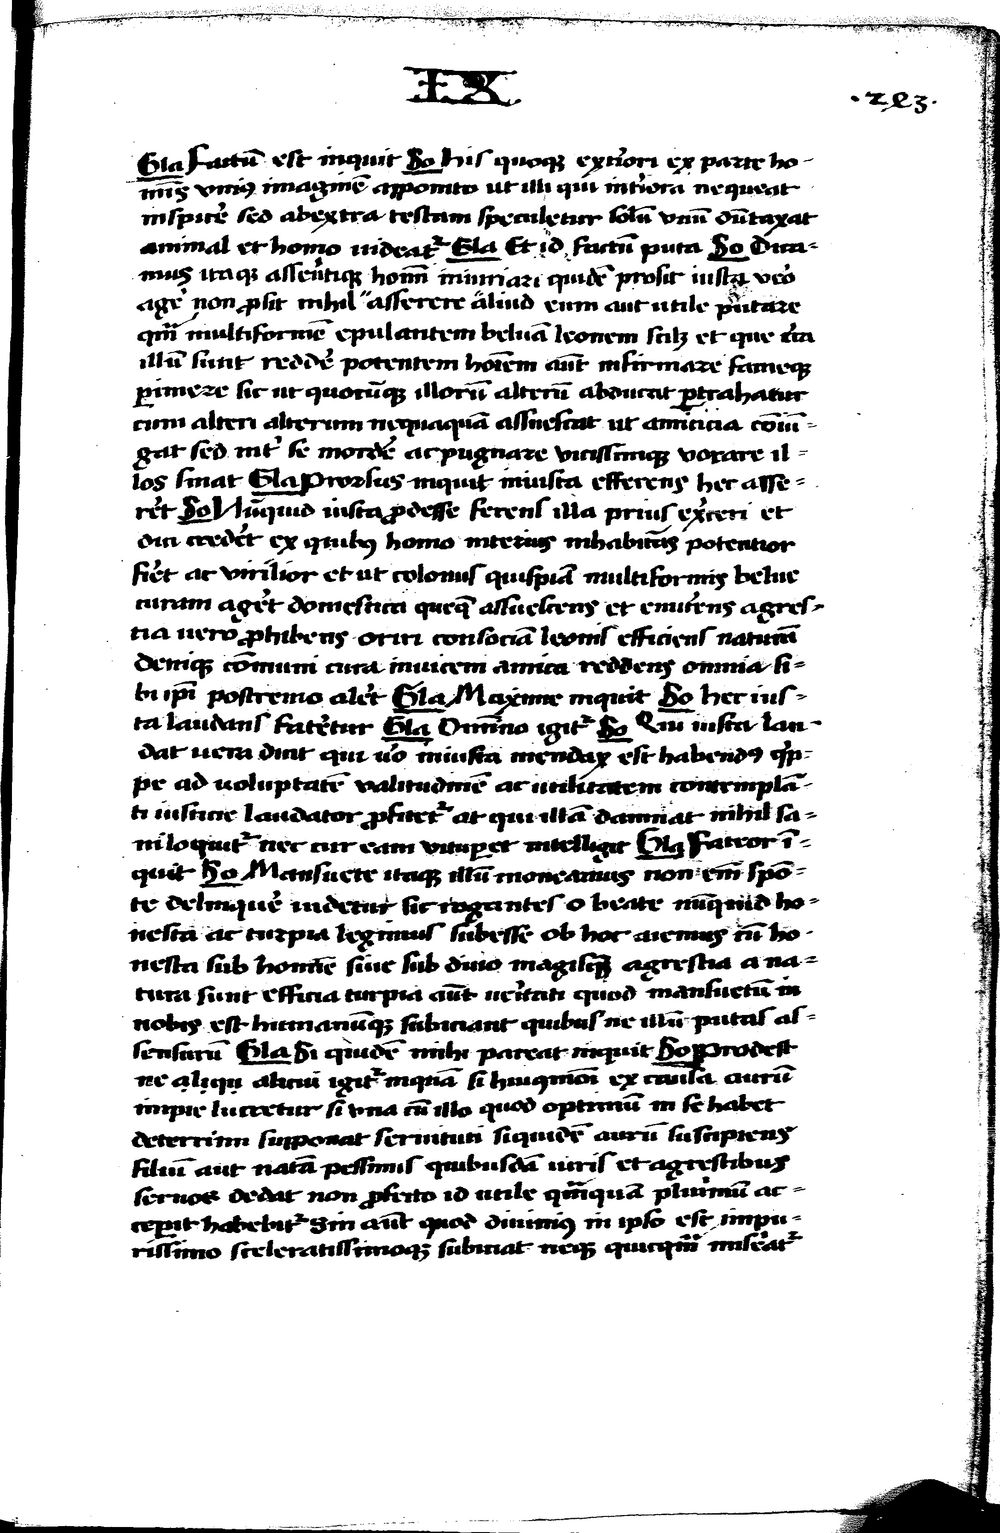 IX
·293·
Gla Factū est inquit So his quoq; extiori ex parte ho-
mīs vniꝰ imaginē apponito ut illi qui intiora nequeat
inspicē sed abextra testam speculetur solū vnū dūtaxat
animal et homo uideatᷣ Gla Et id factū puta So Dica=
mus itaq; assentiq; homī iniuriari quidē prosit iusta vero
agē non ꝓsit nihil asserere aliud eum aut utile putare
qm̄ multiformē epulantem beluā leonem scilz et que circa
illū sunt reddē potentem hoīem aūt infirmare fameq;
perimere sic ut quocūq; illorū alterū abducat pertrahatur
cum alteri alterum nequaquā assuescat ut amicicia cōiū=
gat sed intᷣ se mordē ac pugnare vicissimq; vorare il=
los sinat Gla Prorsus inquit iniusta efferens hec asse=
rēt So Nūquid iusta ꝓdesse ferens illa prius exerceri et
dici credēt ex quibꝰ homo interius inhabitās potentior
fiēt ac virilior et ut colonus quispiā multiformis belue
curam agēt domestica queq̄ assuescens et enutens agres=
tia uero ꝓhibens oriri consociā leonis efficiens naturā
deniq; cōmuni cura inuicem amica reddens omnia si=
bi ipsi postremo alēt Gla Maxime inquit So hec ius=
ta laudans fatētur Gla Omnīno igitᷣ So Qui iusta lau-
dat uera dicit qui uō iniusta mendax est habendꝰ qp-
pe ad uoluptatē valitudinē ac utilitatem contemplā-
ti iusticie laudator ꝓfitetᷣ at qui illā damnat nihil sa=
ni loquitᷣ nec cur eam vituperet intelligit Gla Fateor ī=
quit So Mansuete itaq; illū moneamus non em̄ spō=
te delinquē uidetur sic rogantes o beate nūquid ho=
nesta ac turpia legimus subesse ob hoc aiemus cū ho-
nesta sub homīe siue sub diuo magisq; agrestia a na=
tura sunt efficia turpia aūt ueritati quod mansuetū in
nobis est humanūq; subiciant quibus ne illū putas as=
sensurū Gla Si quidē mihi pareat inquit So Prodest
ne aliqui alicui igitᷣ inquā si huiqmōi ex causa aurū
impie lucretur si vna cū illo quod optimū in se habet
deterrimi supponat seruituti siquidē aurū suscipiens
filiū aut natā pessimis quibusdā uiris et agrestibus
seruos dedat non ꝓferto id utile qm̄quā plurimū ac=
ceperit habebitᷣ Sin aūt quod diuiniꝰ in ipso est impu=
rissimo sceleratissimoq; subiciat neq; quicqm̄ misēatᷣ